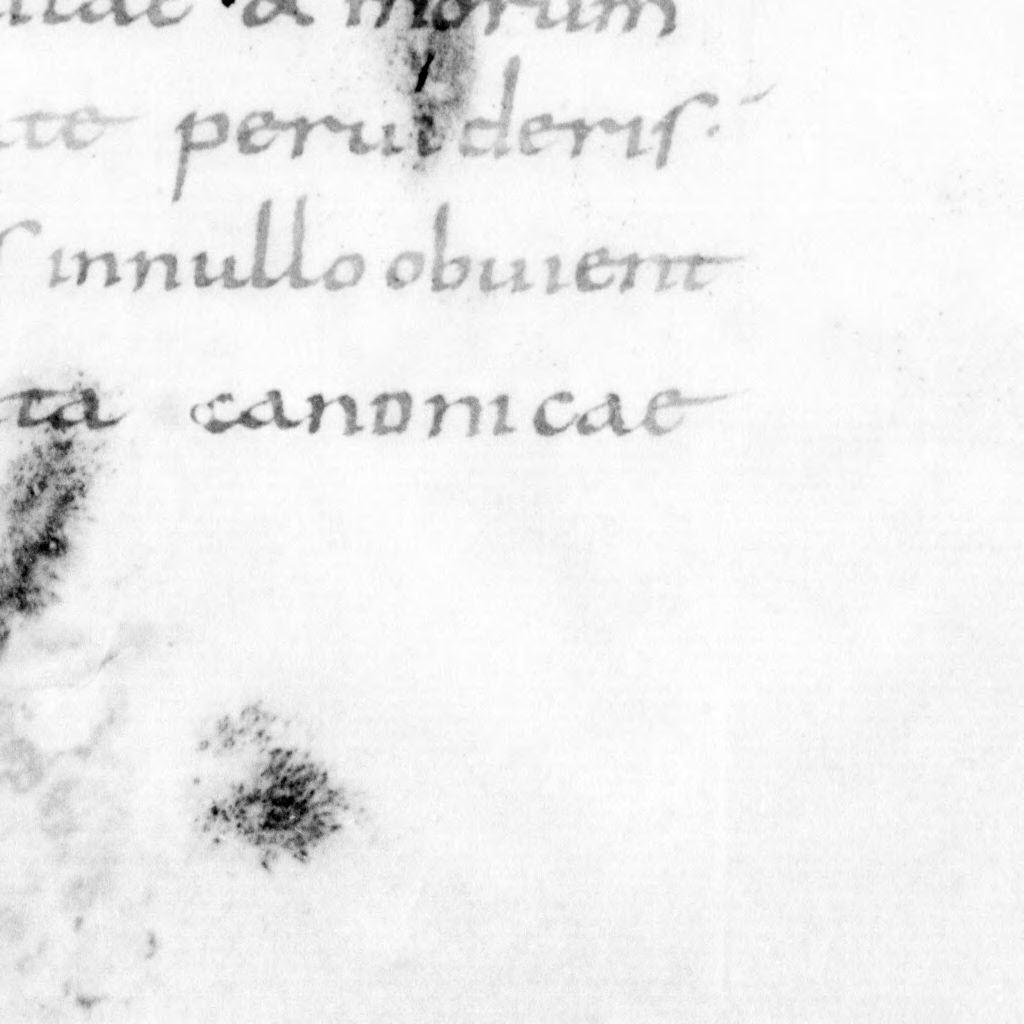 & morum
te peruideris.
innullo obuient
ta canonicae